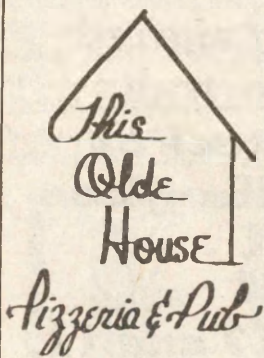 This
Olde
House
Pizzeria & Pub